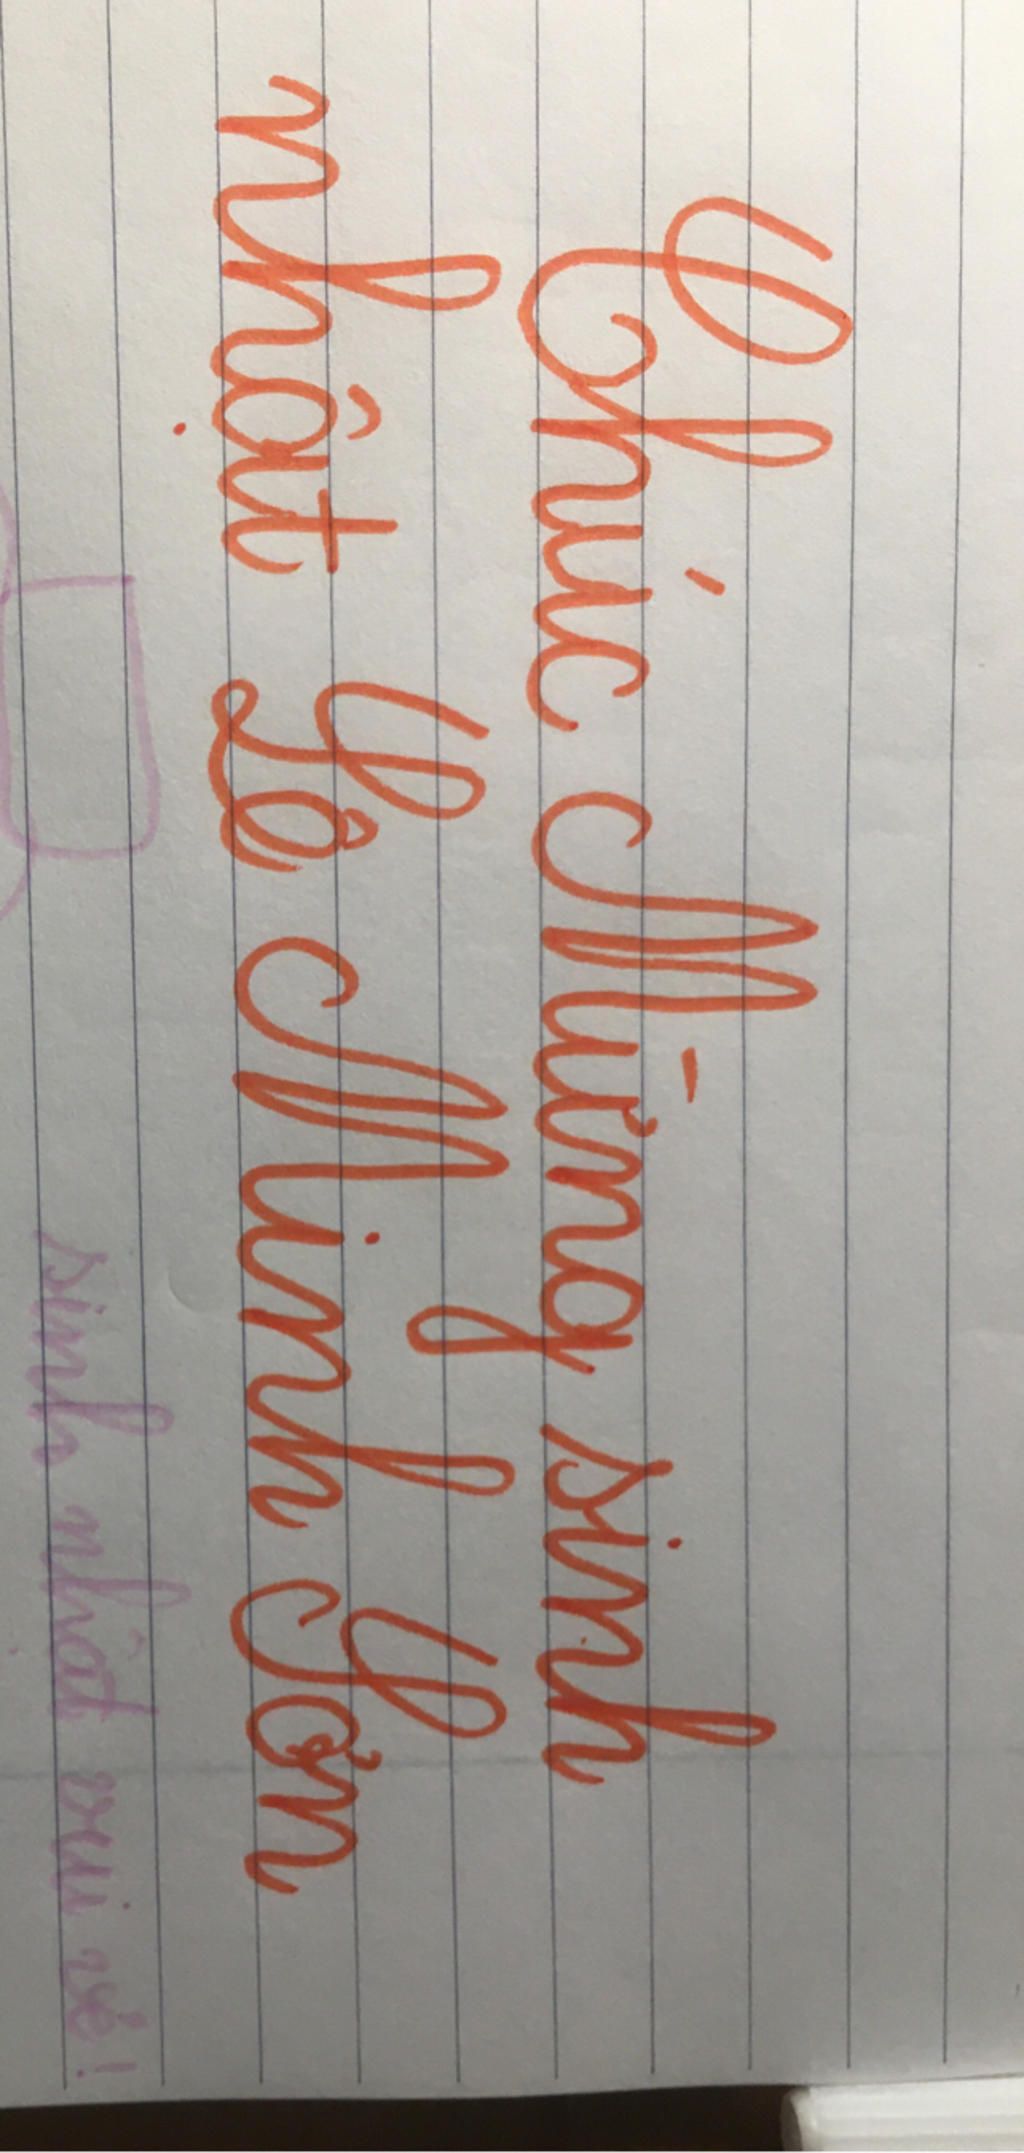 Chúc Mừng sinh
nhật Lê Minh Sơn
sinh nhật vui vẻ!